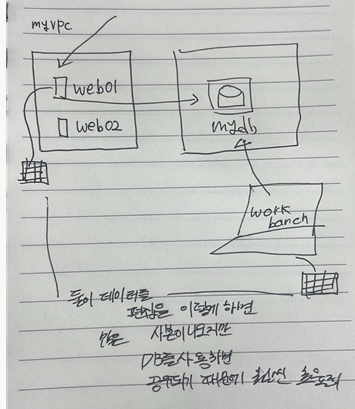 myvpc
web01
web02
mydb
work
banch
둘이 데이터를
편집을 이렇게 하면
많은 사본이 나오지만
DB를 사용하면
공유되기 때문에 훨씬